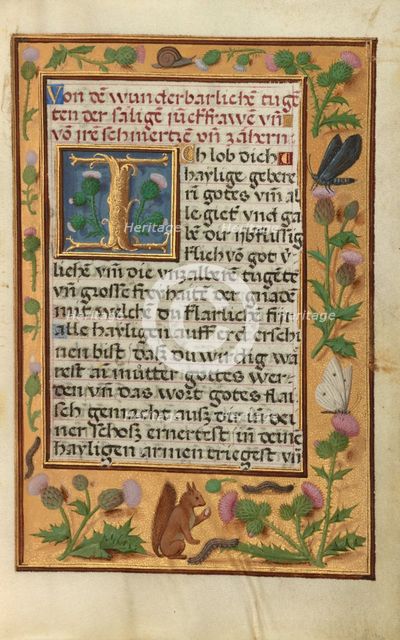 Von dē wunderbarlichē tugē
ten der säligē jūckfrawē vn̄
vō irē schmertzē vn̄ zähern
Ich lob dich
haylige gebere
rin gotes vm al
le giet vnd ga
be dir vbflüssig
klich vō got v̈
lichē vm̄ die vnzalberē tugētē
vn̄ grosse freyhaitē der gnadē
mit welchē du klarlichē für
alle hayligen auff erdē erschi
nen bist daß du wirdig wa
rest ai mütter gottes wer
den vm̄ das wort gotes flai
sch gemacht ausz dir in dei
ner schosz ernertest in deinē
hayligen armen triegest vn̄
Heritage
Heritage
Heritage
Heritage
Heritage
Heritage